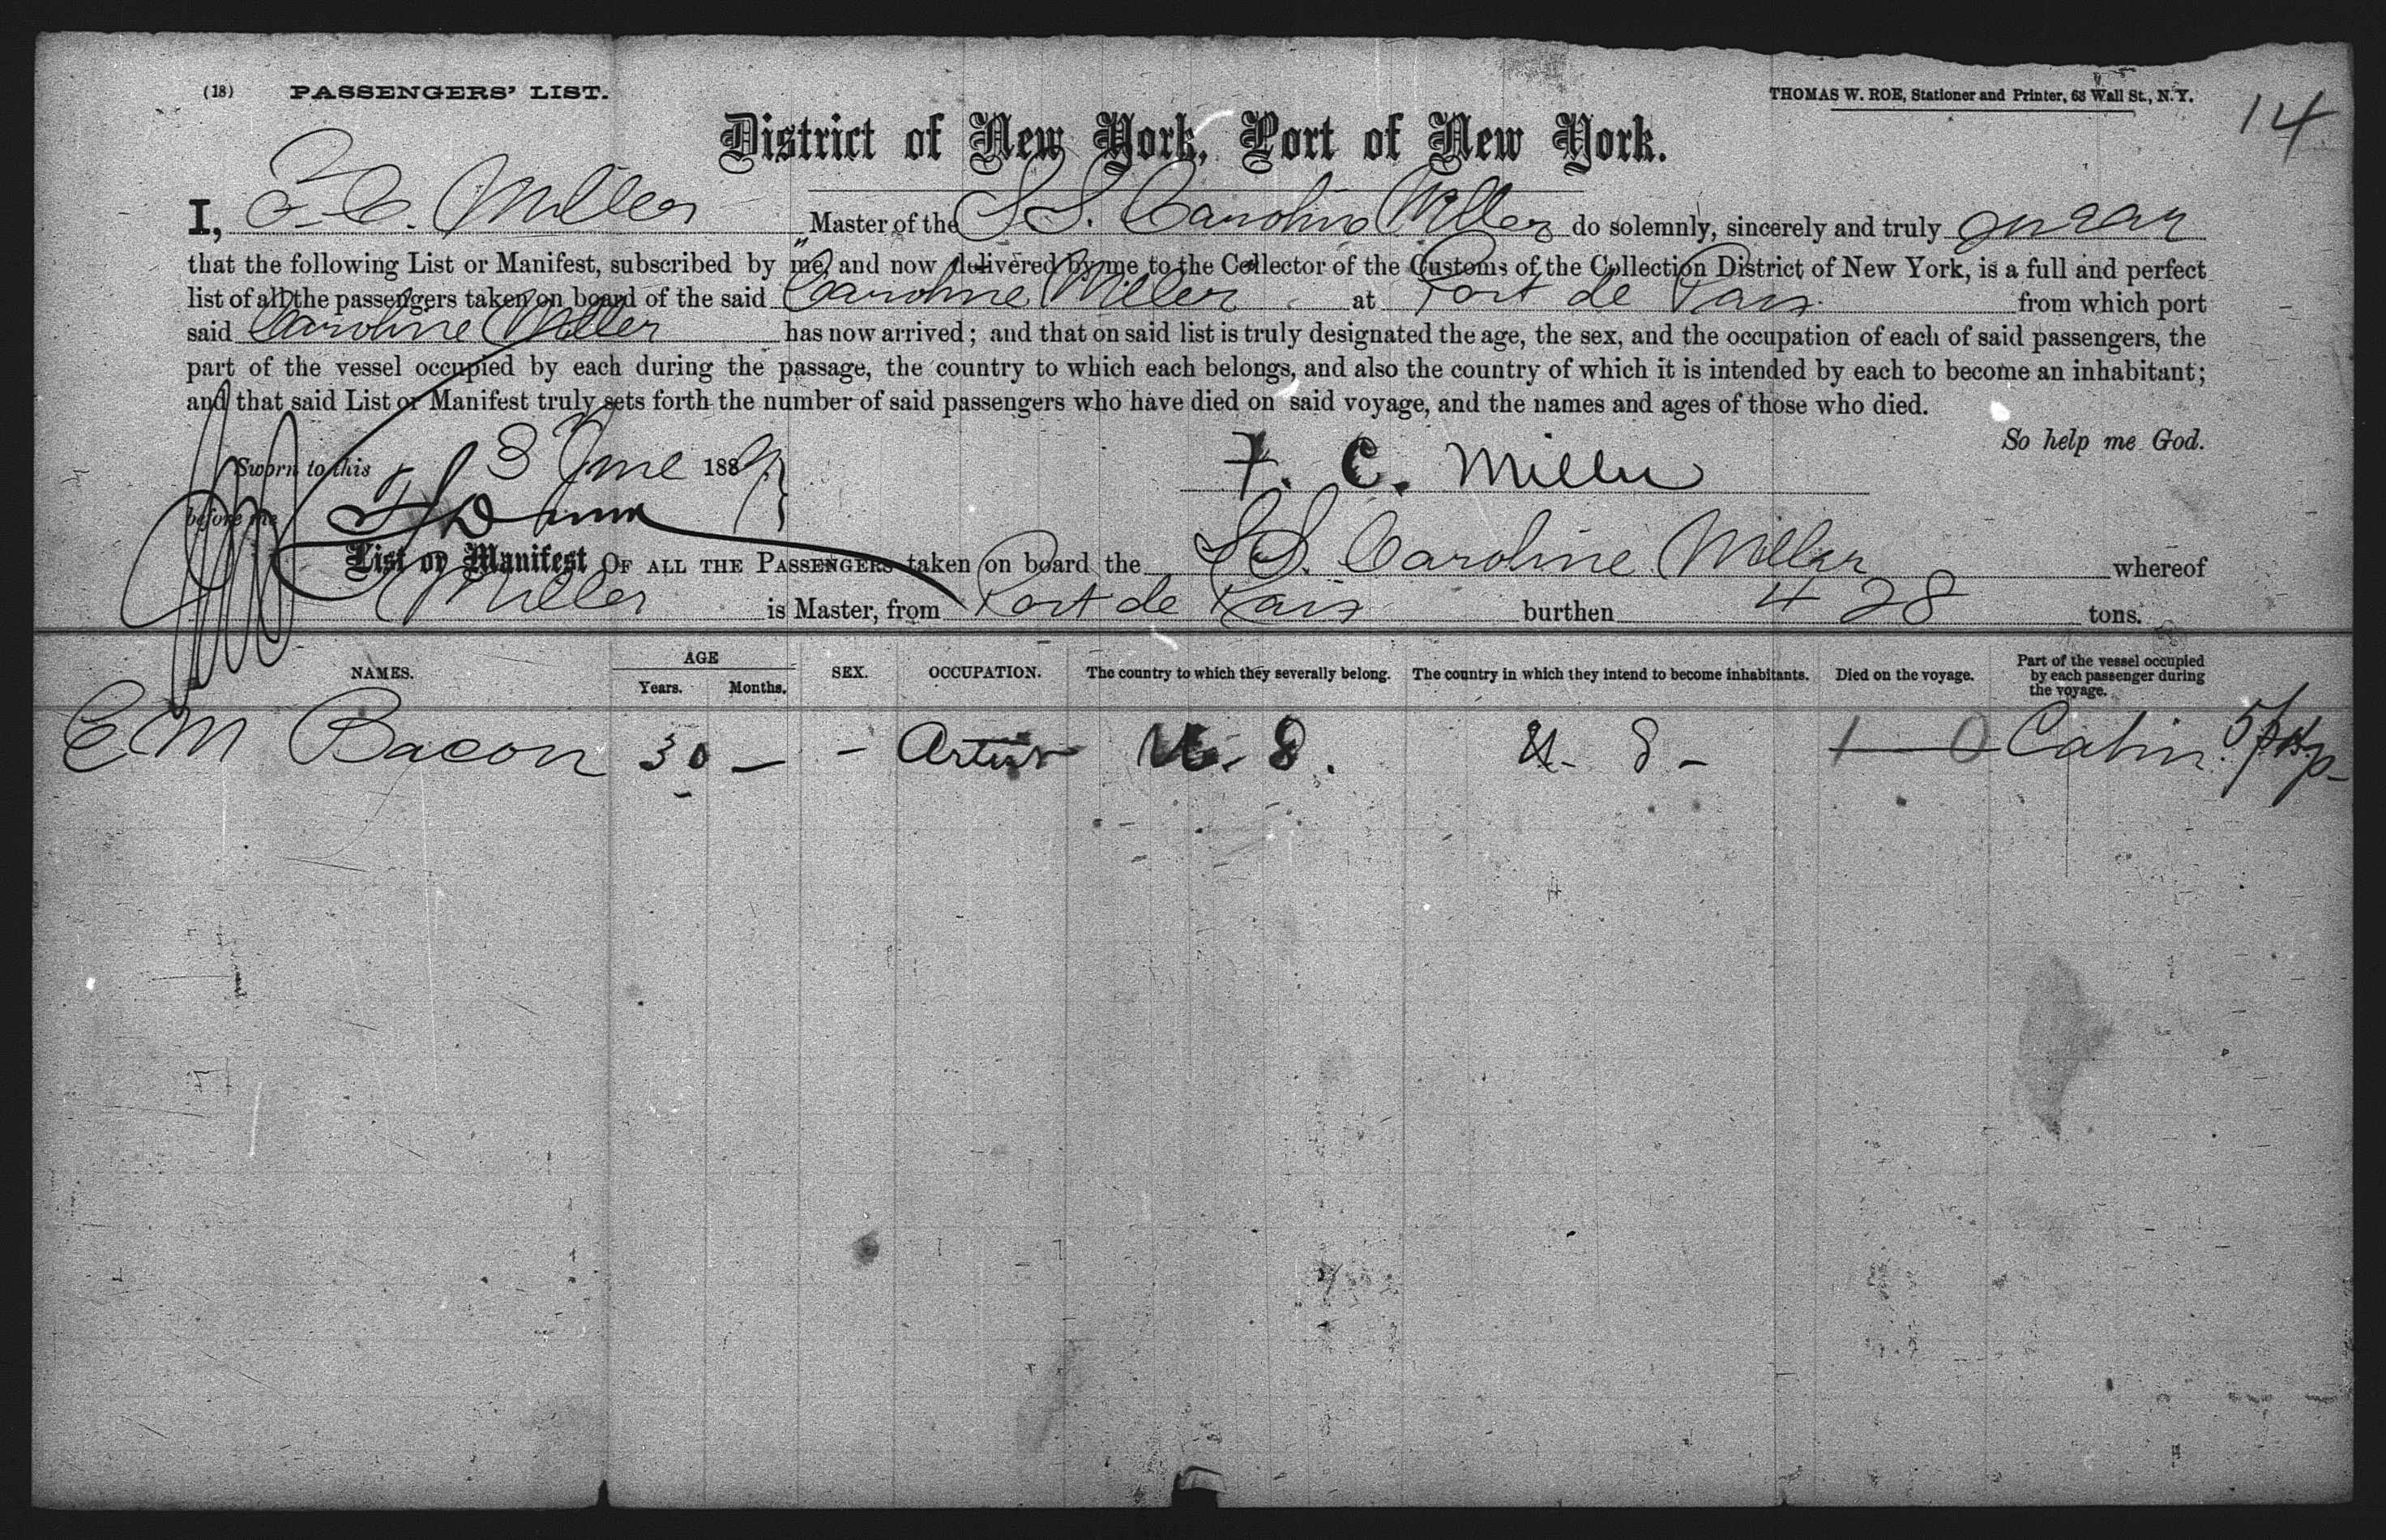 (18) PASSENGERS' LIST.
THOMAS W. ROE, Stationer and Printer, 63 Wall St., N.Y.
14
District of New York, Port of New York.
I, F. C. Miller Master of the S.S. Caroline Miller do solemnly, sincerely and truly swear
that the following List or Manifest, subscribed by me, and now delivered by me to the Collector of the Customs of the Collection District of New York, is a full and perfect
list of all the passengers taken on board of the said Caroline Miller at Port de Paix from which port
said Caroline Miller has now arrived; and that on said list is truly designated the age, the sex, and the occupation of each of said passengers, the
part of the vessel occupied by each during the passage, the country to which each belongs, and also the country of which it is intended by each to become an inhabitant;
and that said List or Manifest truly sets forth the number of said passengers who have died on said voyage, and the names and ages of those who died.
So help me God.
Sworn to this 3 June 1889
F. C. Miller
before me
List or Manifest OF ALL THE PASSENGERS taken on board the S.S. Caroline Miller whereof
Miller is Master, from Port de Paix burthen 428 tons.
NAMES. AGE Years. Months. SEX. OCCUPATION. The country to which they severally belong. The country in which they intend to become inhabitants. Died on the voyage. Part of the vessel occupied by each passenger during the voyage.
C M Bacon 30 — - Artist U. S. U. S - 1 — 0 Cabin.